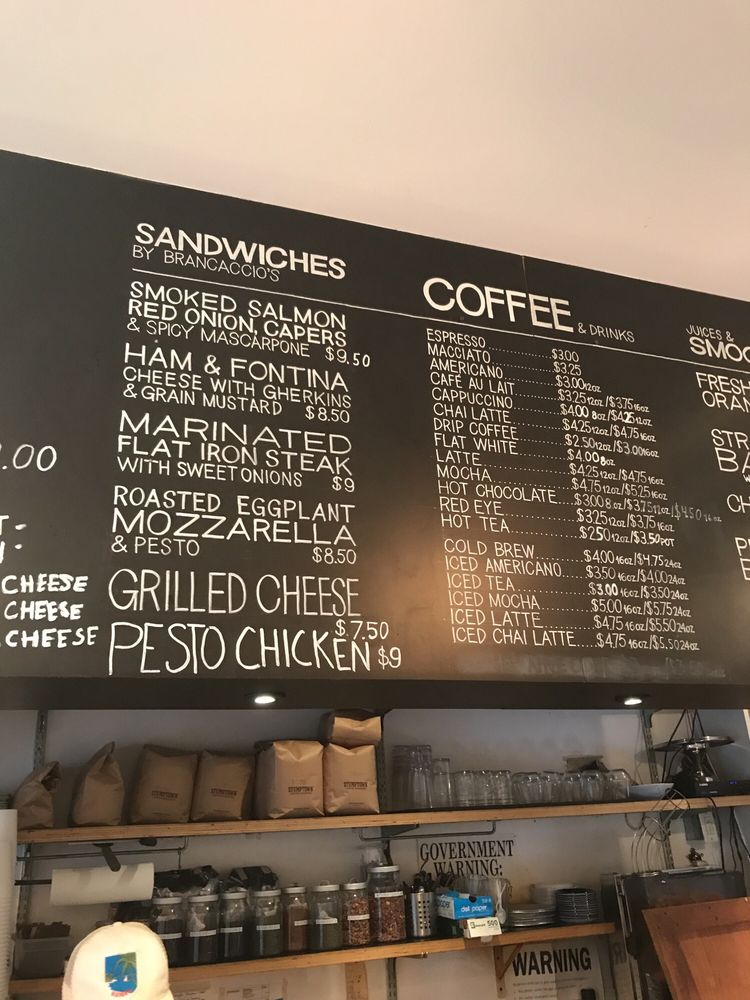 SANDWICHES
BY BRANCACCIO'S
SMOKED SALMON
RED ONION, CAPERS
& SPICY MASCARPONE $9.50
HAM & FONTINA
CHEESE WITH GHERKINS
& GRAIN MUSTARD $8.50
MARINATED
FLAT IRON STEAK
WITH SWEET ONIONS $9
ROASTED EGGPLANT
MOZZARELLA
& PESTO $8.50
GRILLED CHEESE
$7.50
PESTO CHICKEN $9
.00
CHEESE
CHEESE
CHEESE
COFFEE & DRINKS
ESPRESSO..........$3.00
MACCIATO..........$3.25
AMERICANO..........$3.00 12oz
CAFÉ AU LAIT..........$3.25 12oz/$3.75 16oz
CAPPUCCINO..........$4.00 8oz/$4.25 12oz
CHAI LATTE..........$4.25 12oz/$4.75 16oz
DRIP COFFEE..........$2.50 12oz/$3.00 16oz
FLAT WHITE..........$4.00 8oz
LATTE..........$4.25 12oz/$4.75 16oz
MOCHA..........$4.75 12oz/$5.25 16oz
HOT CHOCOLATE...$3.00 8oz/$3.75 12oz/$4.50 16oz
RED EYE..........$3.25 12oz/$3.75 16oz
HOT TEA..........$2.50 12oz/$3.50 POT
COLD BREW..........$4.00 16oz/$4.75 24oz
ICED AMERICANO....$3.50 16oz/$4.00 24oz
ICED TEA..........$3.00 16oz/$3.50 24oz
ICED MOCHA..........$5.00 16oz/$5.75 24oz
ICED LATTE..........$4.75 16oz/$5.50 24oz
ICED CHAI LATTE.....$4.75 16oz/$5.50 24oz
JUICES &
SMOO
FRESH
ORAN
STR
BA
CH
STUMPTOWN
STUMPTOWN
GOVERNMENT
WARNING:
deli paper
WARNING